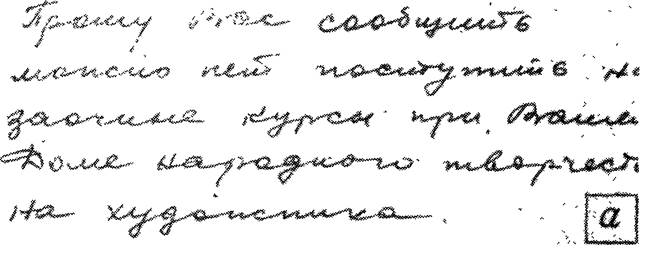 Прошу Вас сообщить
можно лет поступить на
заочные курсы при Вашем
Доме народного творчест
на художника.
а